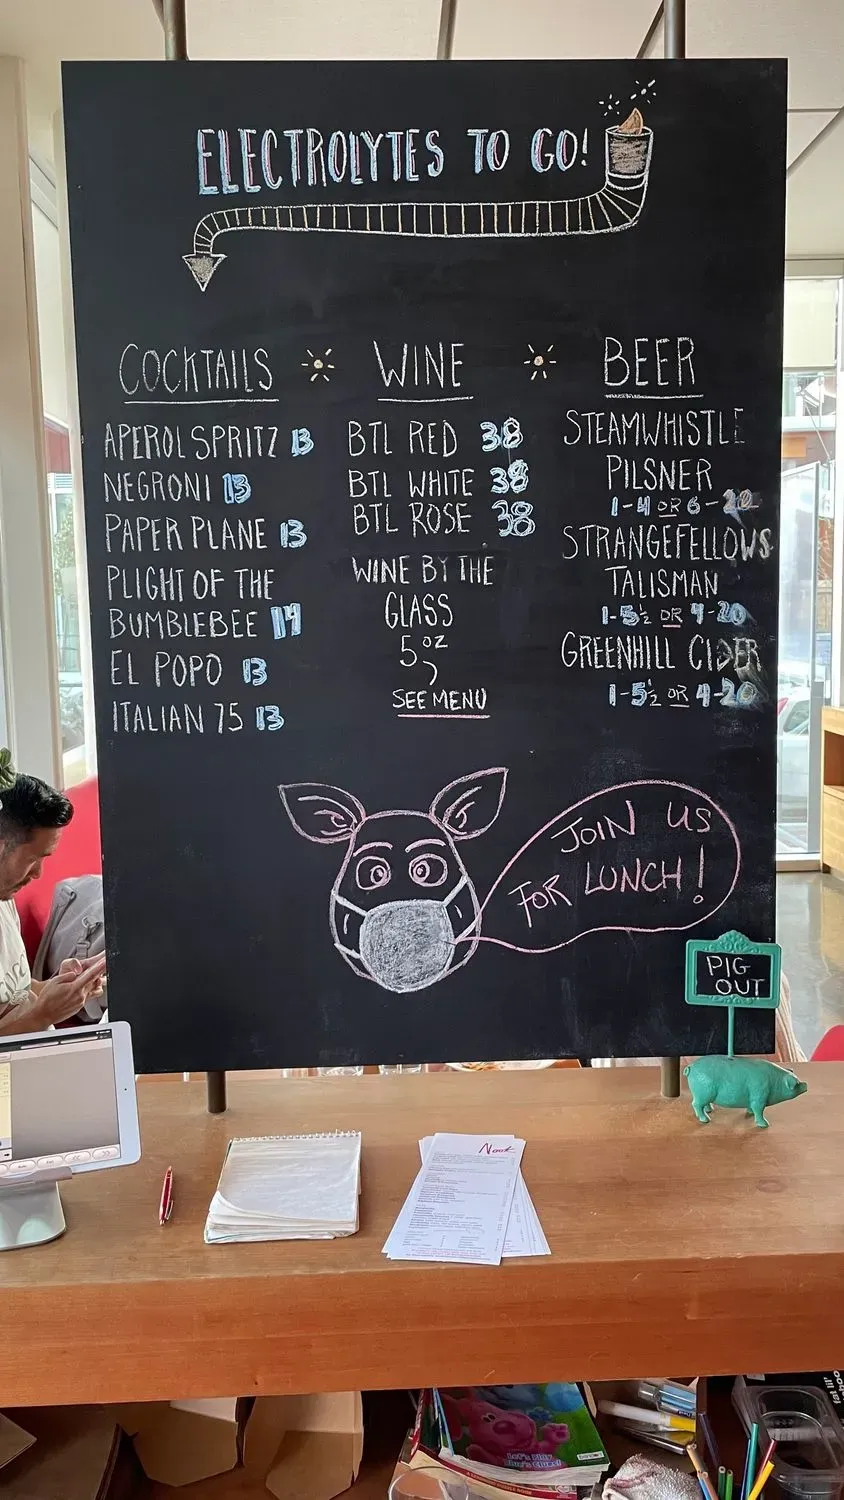 ELECTROLYTES TO GO!
COCKTAILS
APEROL SPRITZ 13
NEGRONI 13
PAPER PLANE 13
PLIGHT OF THE
BUMBLEBEE 14
EL POPO 13
ITALIAN 75 13
WINE
BTL RED 38
BTL WHITE 38
BTL ROSE 38
WINE BY THE
GLASS
5 oz
SEE MENU
BEER
STEAMWHISTLE
PILSNER
1-4 OR 6-22
STRANGEFELLOWS
TALISMAN
1-5½ OR 4-20
GREENHILL CIDER
1-5½ OR 4-20
JOIN US
FOR LUNCH!
PIG
OUT
Nook